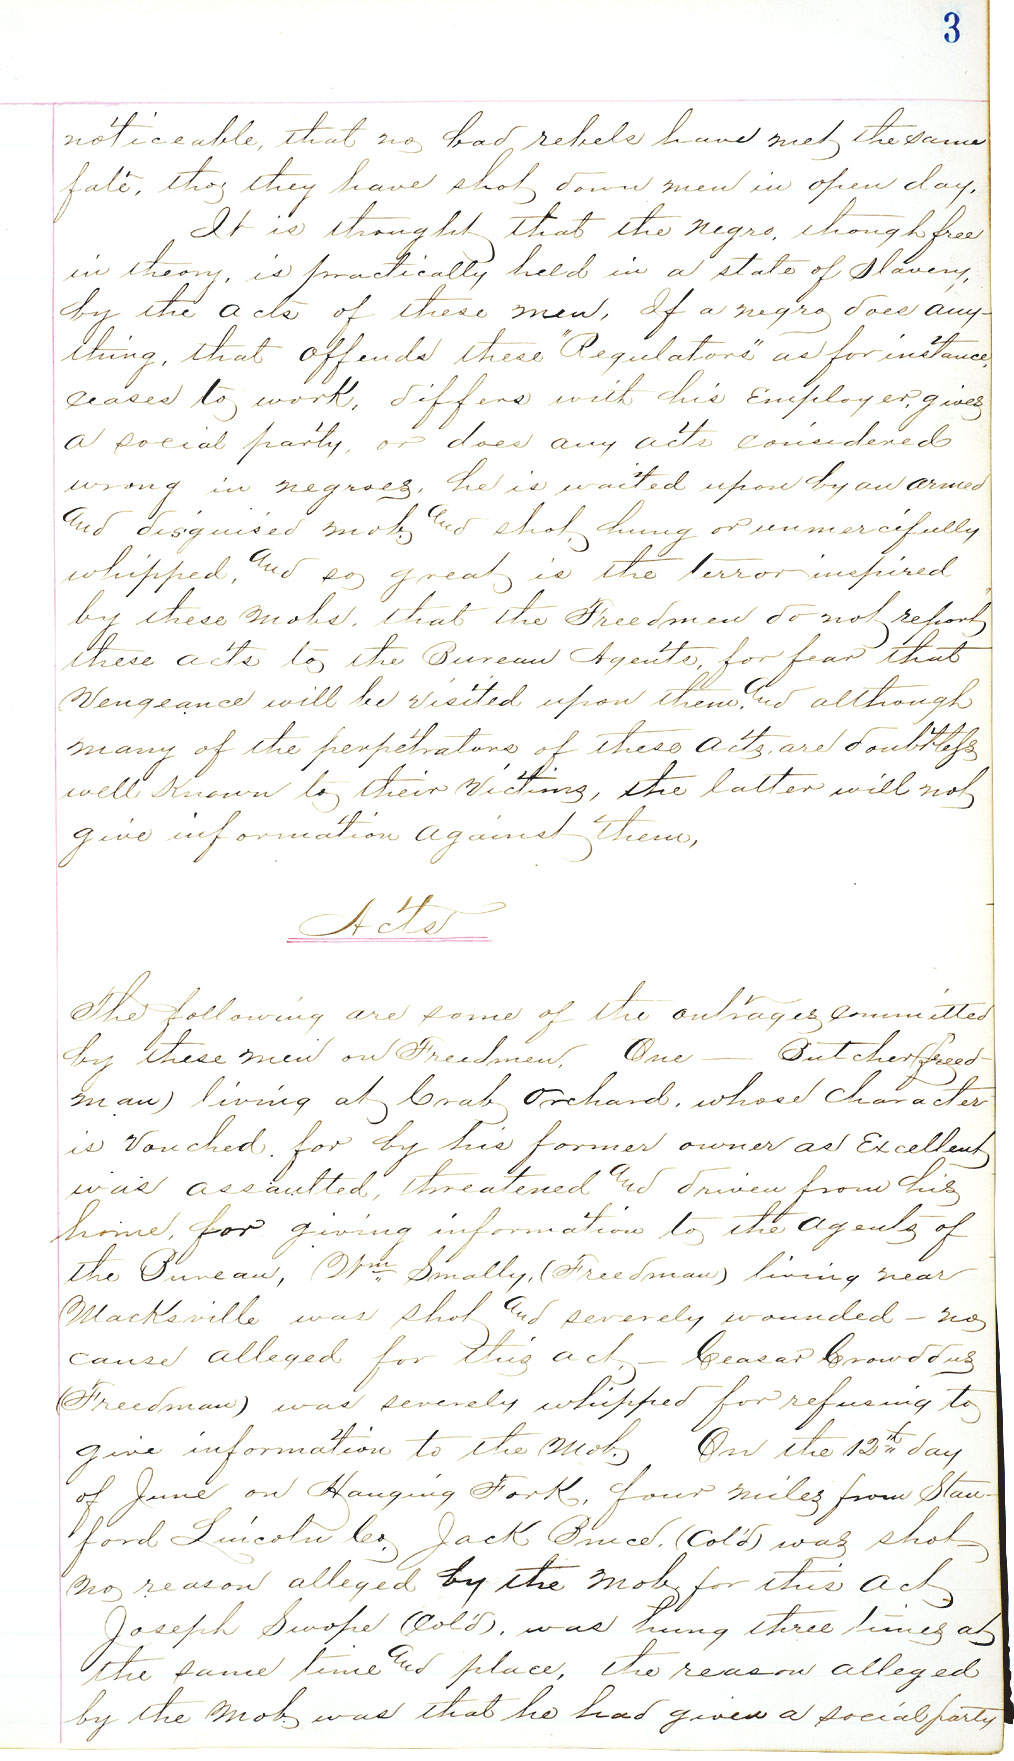 3
noticeable, that no bad rebels have met the same
fate, tho, they have shot down men in open day.
It is thought that the negro, though free
in theory, is practically held in a state of Slavery,
by the acts of these men, If a negro does any-
thing, that offends these "Regulators" as for instance,
ceases to work, differs with his Employer, gives
a social party, or does any acts considered
wrong in negroes, he is waited upon by an armed
and disguised mob, and shot, hung or unmercifully
whipped, and so great is the terror inspired
by these Mobs, that the Freedmen do not report
these acts to the Bureau Agents, for fear that
Vengeance will be visited upon them, and although
many of the perpetrators of these acts, are doubtless
well Known to their Victims, the latter will not
give information against them,
Acts
The following are some of the outrages committed
by these men on Freedmen. One — Butcher (freed-
man) living at Crab Orchard, whose character
is Vouched for by his former owner as Excellent
was assaulted, threatened and driven from his
home, for giving information to the agents of
the Bureau, Wm Smally, (Freedman) living near
Macksville was shot and severely wounded – no
cause alleged for this act, – Ceasar Crowddus
(Freedman) was severely whipped for refusing to
give information to the Mob. On the 12th day
of June on Hanging Fork, four miles from Stan-
ford Lincoln Co, Jack Bruce, (Col'd) was shot
no reason alleged by the Mob for this act
Joseph Swope (Col'd), was hung three times at
the same time and place, the reason alleged
by the Mob was that he had given a social party